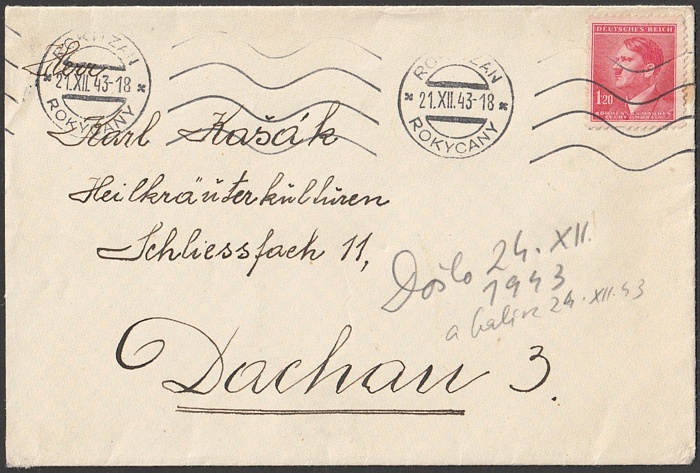 ROKITZAN
* 21.XII.43-18 *
ROKYCANY
ROKITZAN
* 21.XII.43-18 *
ROKYCANY
DEUTSCHES REICH
1.20
BÖHMEN u. MÄHREN
ČECHY a MORAVA
Herr
Karl Kašák
Heilkräuterkulturen
Schliessfach 11,
Dachau 3.
Došlo 24. XII.
1943
a balík 24. XII. 43